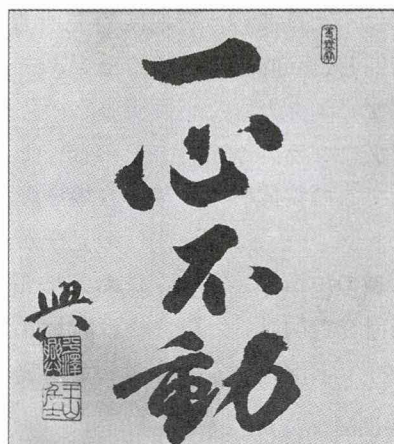 一心不動
興